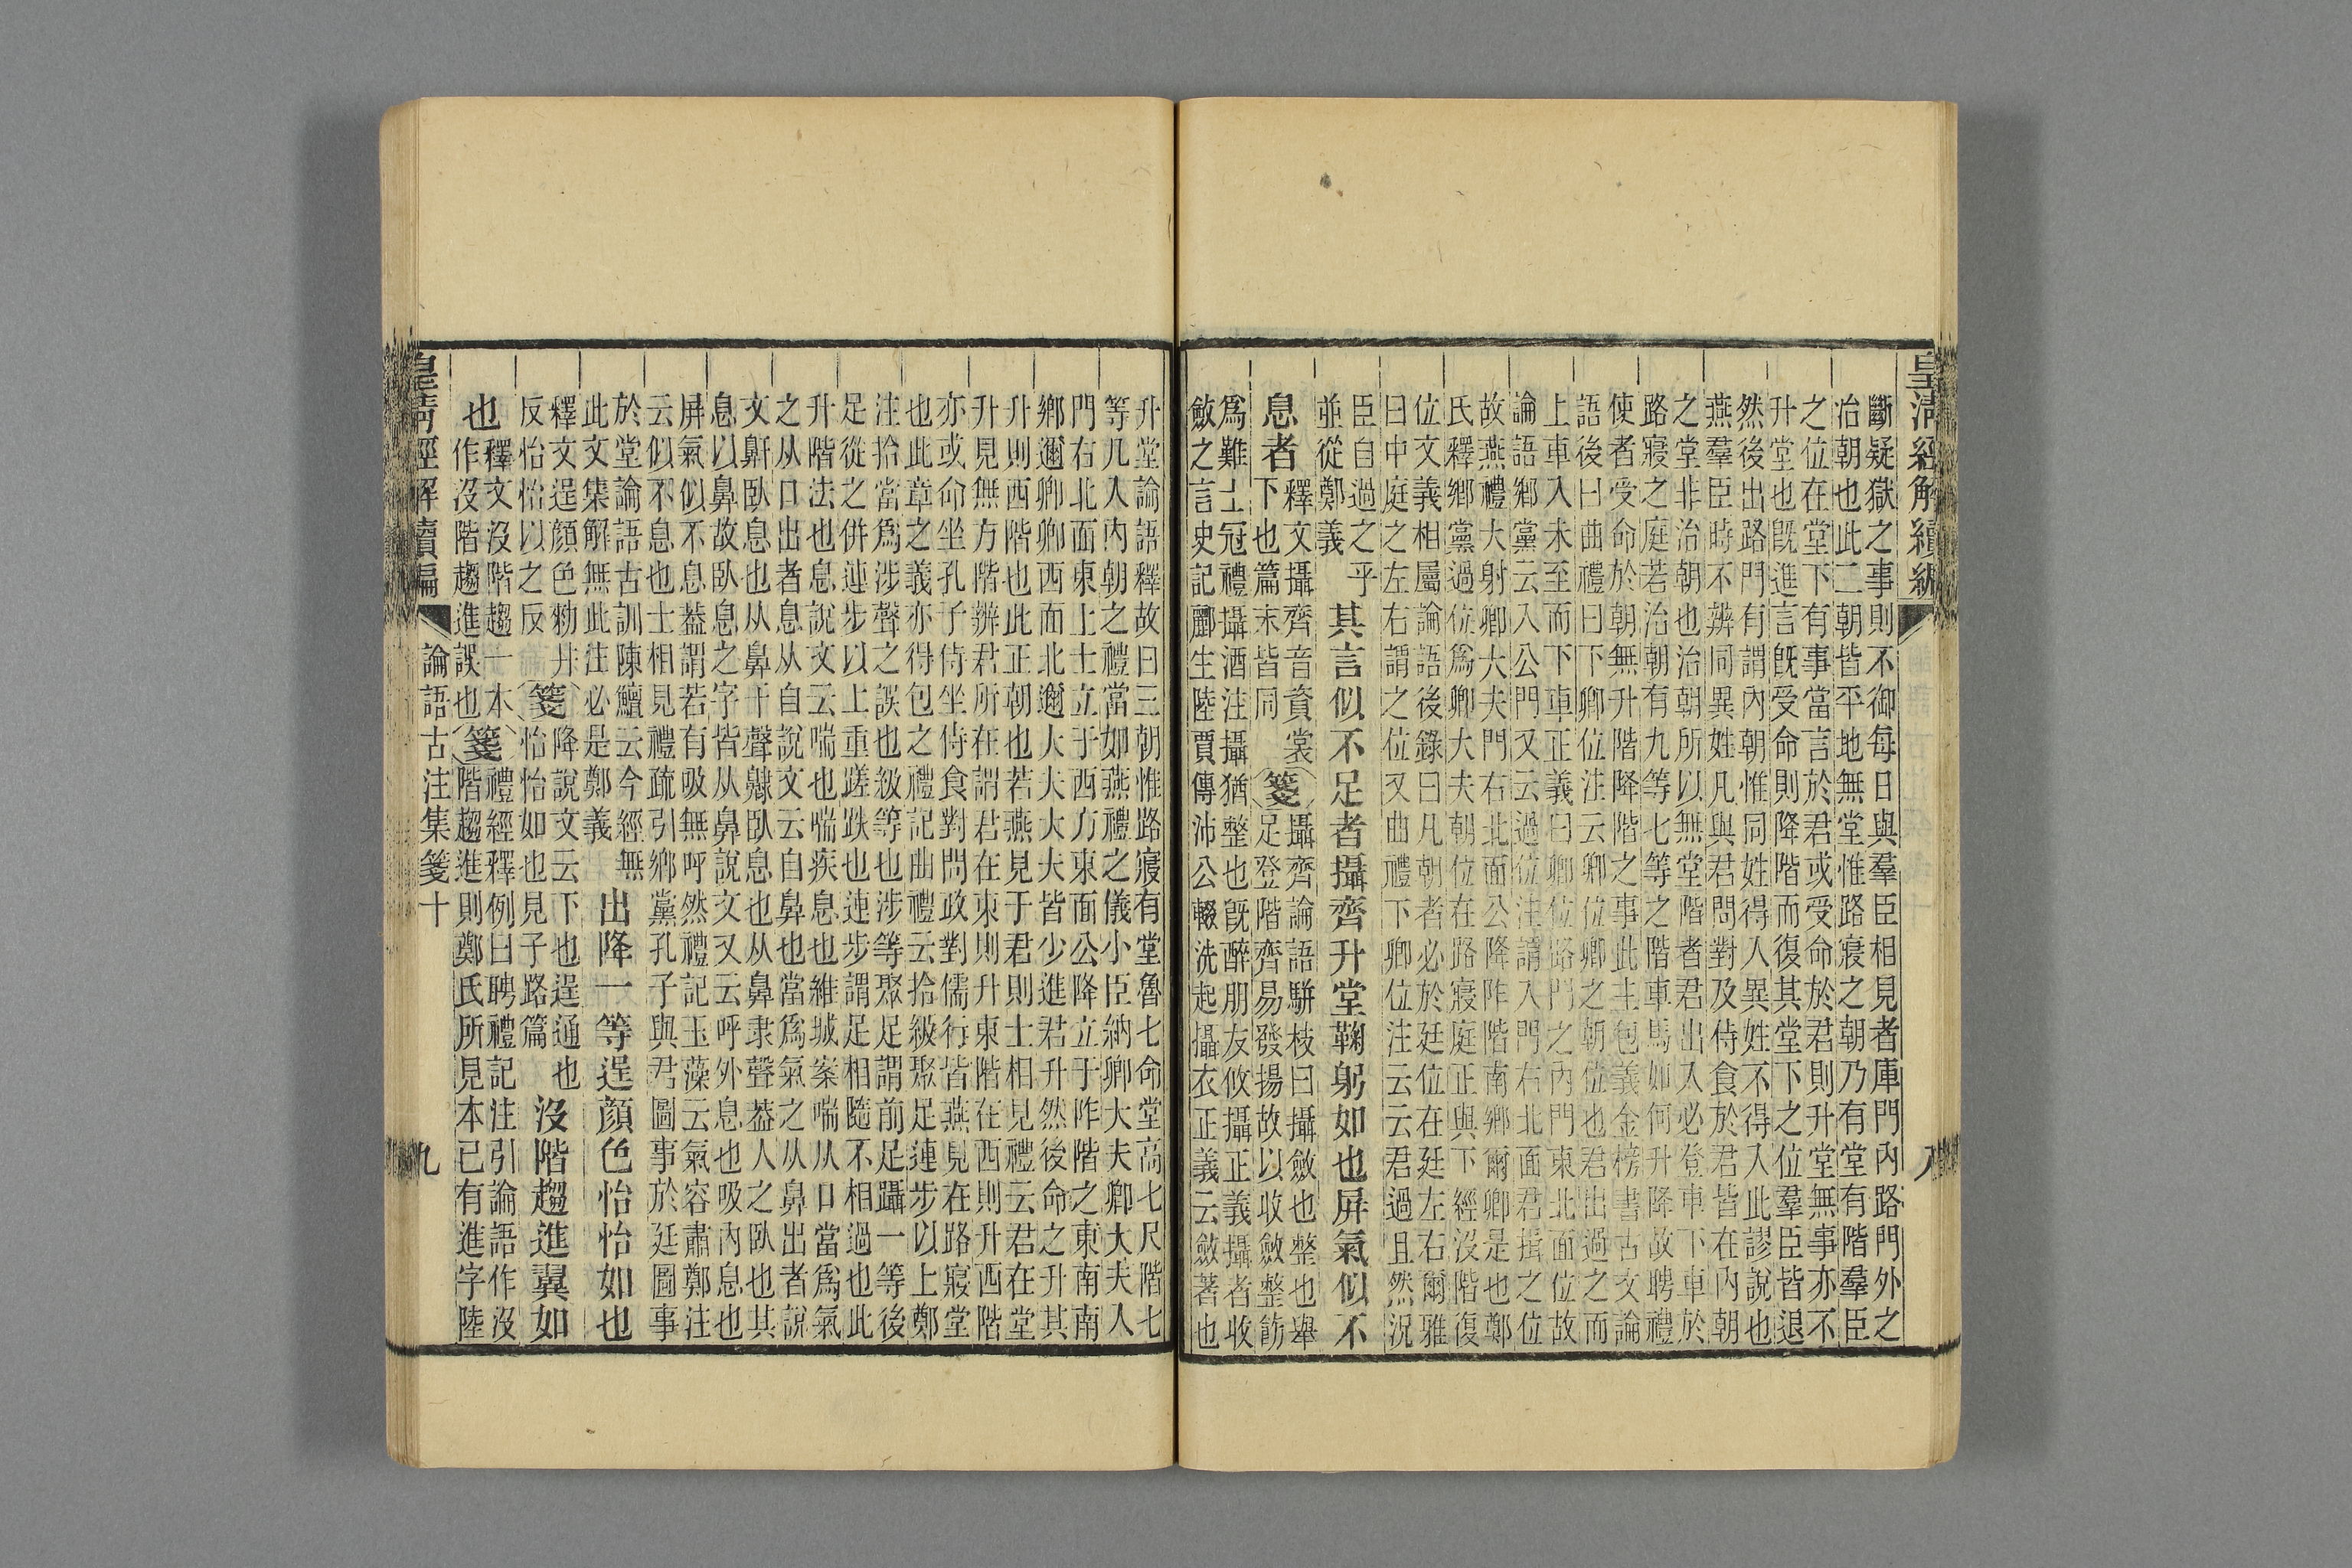 皇清經解續編
八
斷疑獄之事則不御每日與羣臣相見者庫門內路門外之
治朝也此二朝皆平地無堂惟路寢之朝乃有堂有階羣臣
之位在堂下有事當言於君或受命於君則升堂無事亦不
升堂也旣進言旣受命則降階而復其堂下之位羣臣皆退
然後出路門有謂內朝惟同姓得入異姓不得入此謬說也
燕羣臣時不辨同異姓凡與君問對及侍食於君皆在內朝
之堂非治朝也治朝所以無堂階者君出入必登車下車於
路寢之庭若治朝有九等七等之階車馬如何升降故聘禮
使者受命於朝無升階降階之事此主包義金榜書古文論
語後曰曲禮曰下卿位注云卿位卿之朝位也君出過之而
上車入未至而下車正義曰卿位路門之內門東北面位故
論語鄉黨云入公門又云過位注謂入門右北面君揖之位
故燕禮大射卿大夫門右北面公降阼階南鄉爾卿是也鄭
氏釋鄉黨過位爲卿大夫朝位在路寢庭正與下經沒階復
位文義相屬論語後錄曰凡朝者必於廷位在廷左右爾雅
曰中庭之左右謂之位又曲禮下卿位注云云君過且然況
臣自過之乎
並從鄭義
其言似不足者攝齊升堂鞠躬如也屏氣似不
息者
釋文攝齊音資裳
下也篇末皆同
箋
攝齊論語駢枝曰攝斂也整也舉
足登階齊易發揚故以收斂整飭
爲難士冠禮攝酒注攝猶整也旣醉朋友攸攝正義攝者收
斂之言史記酈生陸賈傳沛公輟洗起攝衣正義云斂著也
升堂論語釋故曰三朝惟路寢有堂魯七命堂高七尺階七
等凡入內朝之禮當如燕禮之儀小臣納卿大夫卿大夫入
門右北面東上士立于西方東面公降立于阼階之東南南
鄉邇卿卿西而北邇大夫大夫皆少進君升然後命之升其
升則西階也此正朝也若燕見于君則士相見禮云君在堂
升見無方階辨君所在謂君在東則升東階在西則升西階
亦或命坐孔子侍坐侍食對問政對儒行皆燕見在路寢堂
也此章之義亦得包之禮記曲禮云拾級聚足連步以上鄭
注拾當爲涉聲之誤也級等也涉等聚足謂前足躡一等後
足從之併連步以上重蹉跌也連步謂足相隨不相過也此
升階法也息說文云喘也喘疾息也維城案喘从口當爲氣
之从口出者息从自說文云自鼻也當爲氣之从鼻出者說
文鼾臥息也从鼻干聲齂臥息也从鼻隶聲葢人之臥也其
息以鼻故臥息之字皆从鼻說文又云呼外息也吸內息也
屏氣似不息葢謂若有吸無呼然禮記玉藻云氣容肅鄭注
云似不息也士相見禮疏引鄉黨孔子與君圖事於廷圖事
於堂論語古訓陳鱣云今經無
此文集解無此注必是鄭義
出降一等逞顏色怡怡如也
釋文逞顏色勑井
反怡怡以之反
箋
降說文云下也逞通也
怡怡如也見子路篇
沒階趨進翼如
也
釋文沒階趨一本
作沒階趨進誤也
箋
禮經釋例曰聘禮記注引論語作沒
階趨進則鄭氏所見本已有進字陸
皇清經解續編
論語古注集箋十
九